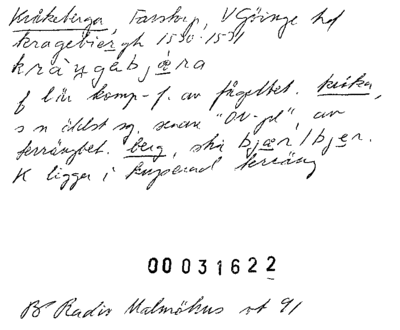 Kråkeberga, Torstorp, V Göinge hd
kragebiergh 1530-1531
kråŋgabjæra
f lin komp-f. av fågelbet. kråka,
s n äldst sg, senare "ON-pl", av
terrängbet. berg, ska bjær/bjer.
K ligger i kuperad terräng
00031622
BP Radio Malmöhus vt 91